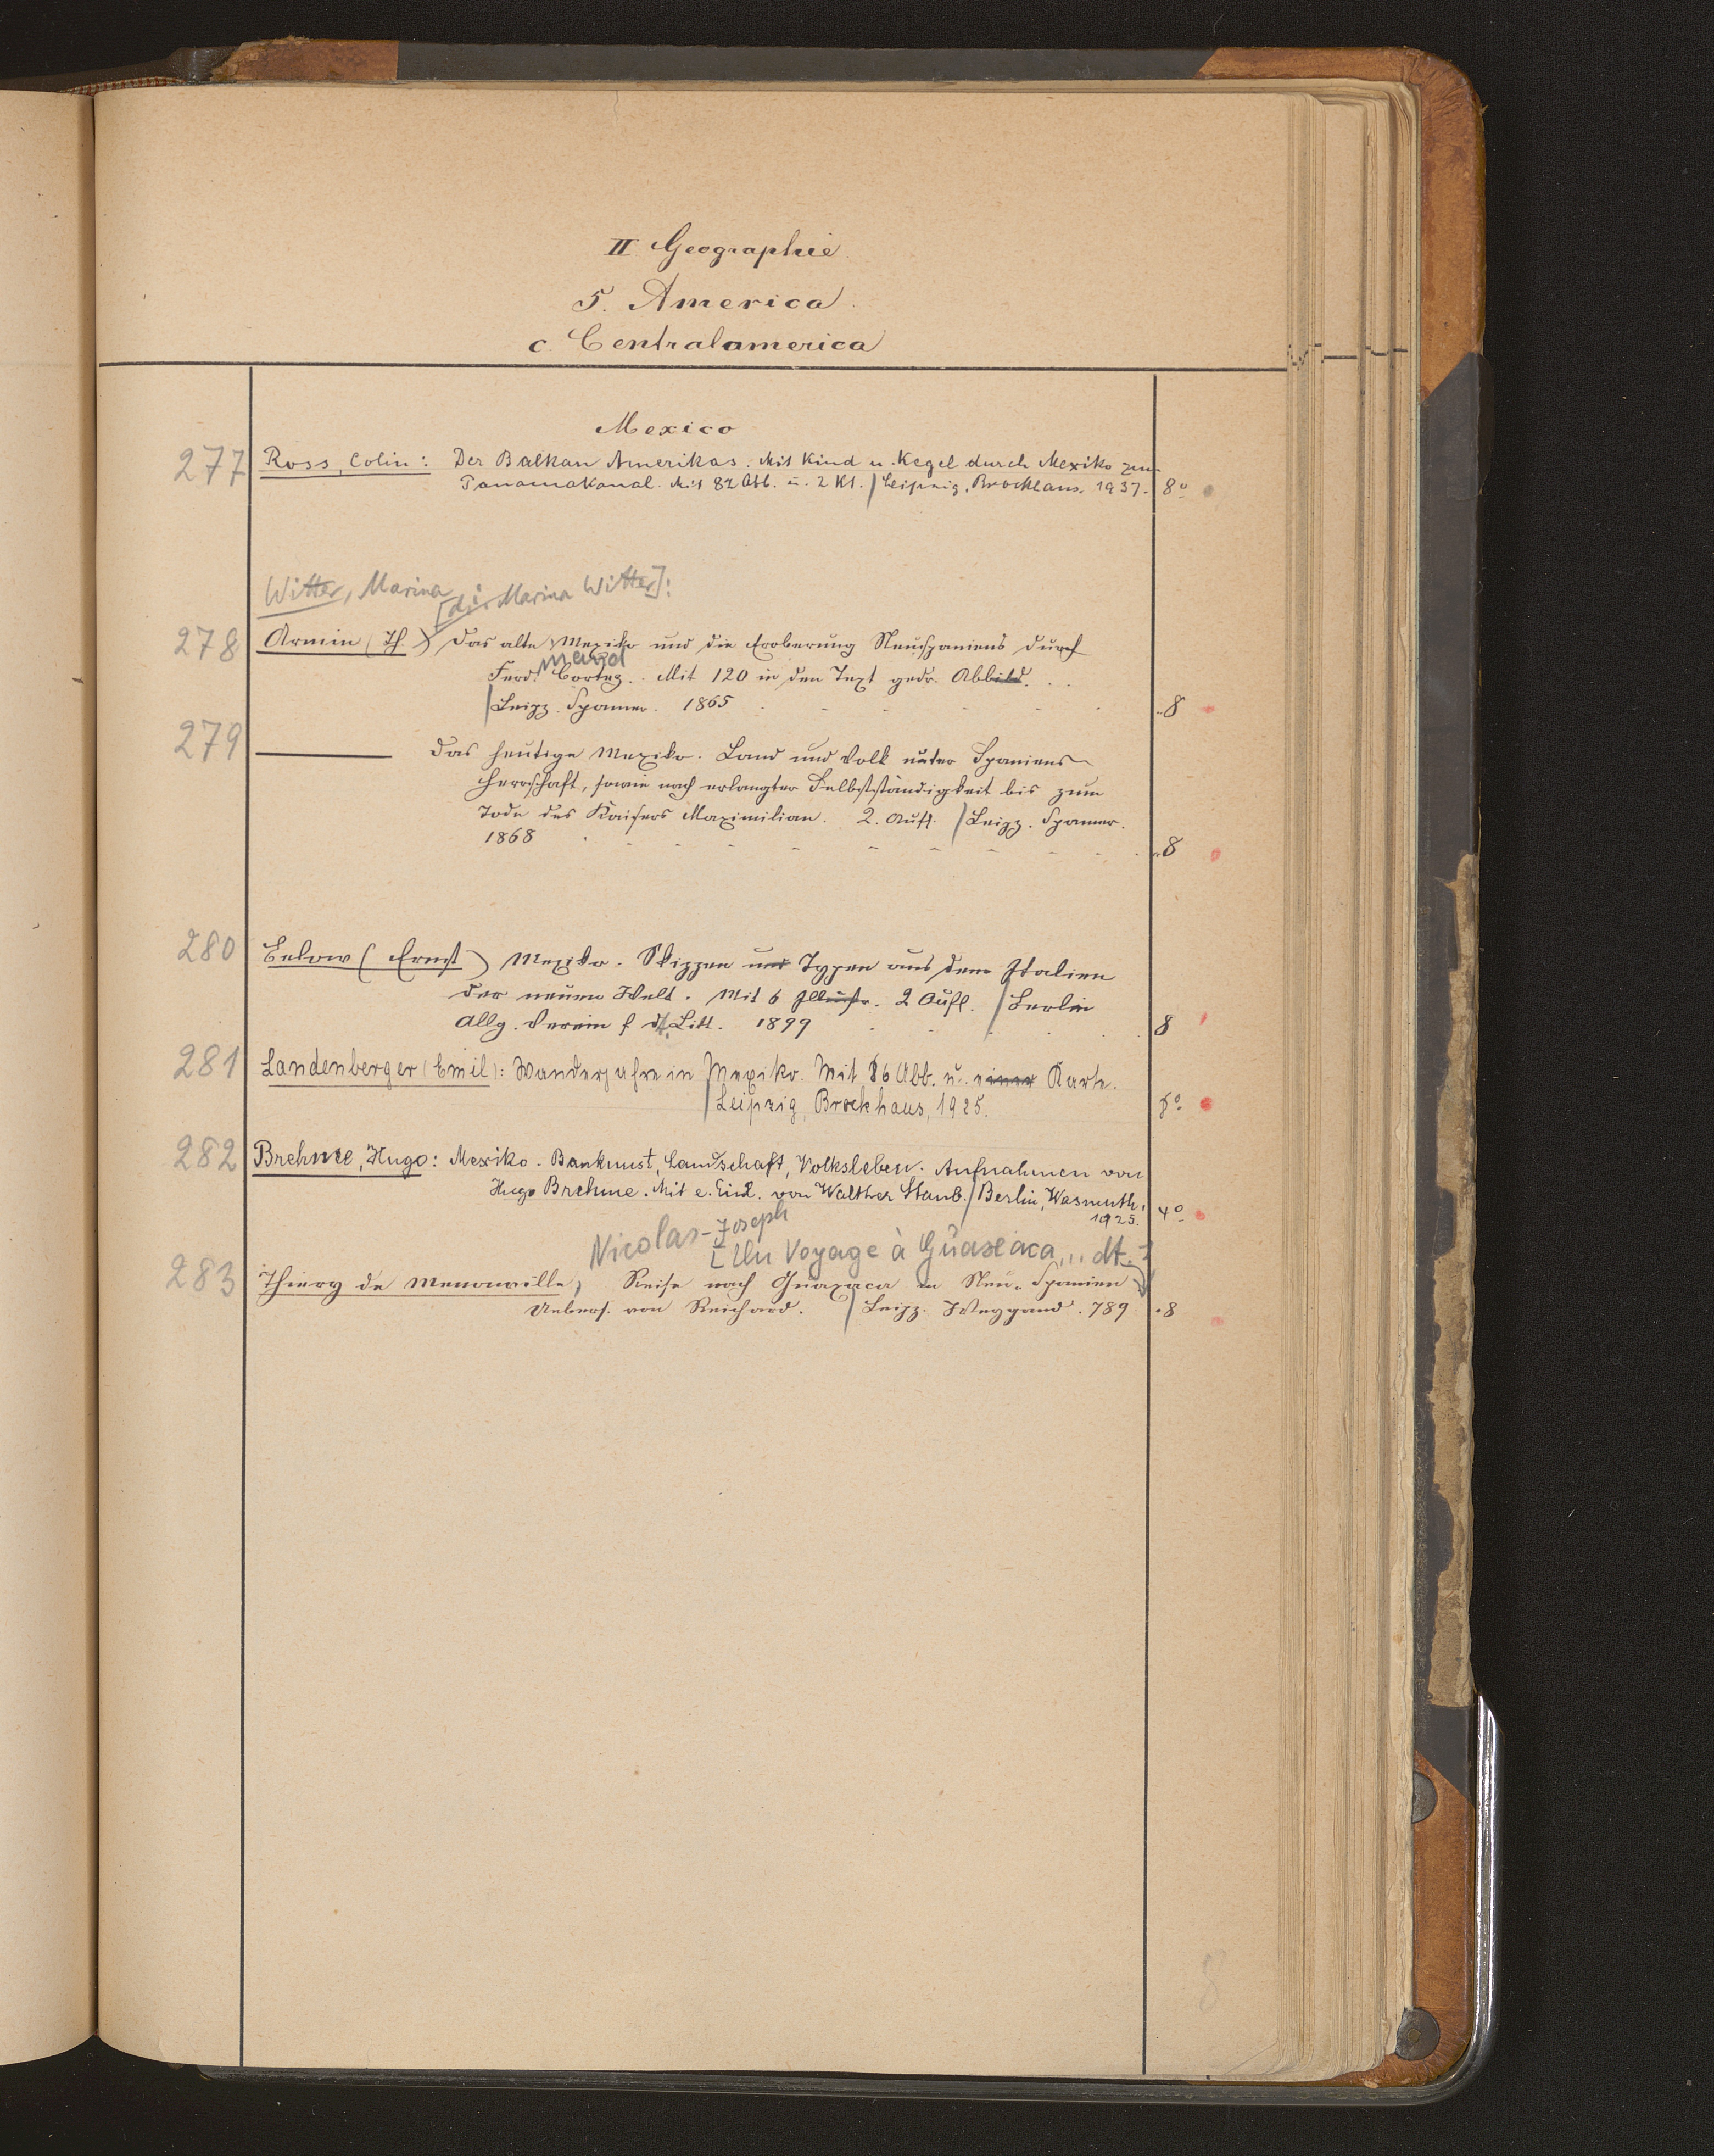 II Geographie.
5. America.
c. Centralamerica
Mexico
277 Ross, Colin: Der Balkan Amerikas. Mit Kind u. Kegel durch Mexiko zum
Panamakanal. Mit 82 Abb. u. 2 Kt. / Leipzig, Brockhaus. 1937. 8°
Witter, Marina
[d.i. Marina Witter]:
278 Armin (Th.) Das alte Mexiko und die Eroberung Neuspaniens durch
Ferd. Cortez. Mit 120 in den Text gedr. Abbild.
/ Leipz. Spamer. 1865 8
279 ——— Das heutige Mexiko. Land und Volk unter Spaniens
Herrschaft, sowie nach erlangter Selbstständigkeit bis zum
Tode des Kaisers Maximilian. 2. Aufl. / Leipz. Spamer.
1868 8
280 Below (Ernst) Mexiko. Skizzen und Typen aus dem Italien
der neuen Welt. Mit 6 Illustr. 2 Aufl. / Berlin
Allg. Verein f. dt. Litt. 1899 8
281 Landenberger (Emil): Wanderjahre in Mexiko. Mit 86 Abb. u. einer Karte.
/ Leipzig, Brockhaus, 1925. 8°
282 Brehme, Hugo: Mexiko. Baukunst, Landschaft, Volksleben. Aufnahmen von
Hugo Brehme. Mit e. Einl. von Walther Staub. / Berlin, Wasmuth,
1925. 4°
Nicolas-Joseph
[Un Voyage à Guaxaca,.. dt.]
283 Thiery de Menonville, Reise nach Guaxaca in Neu-Spanien
Uebers. von Reichard. / Leipz. Weygand. 789 8
8